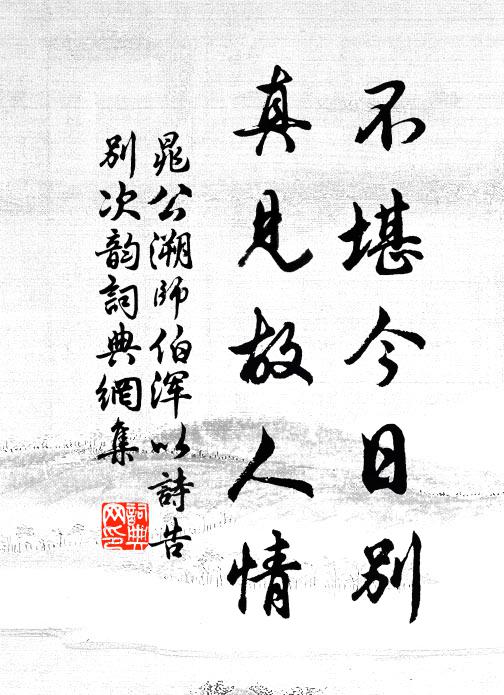 不堪今日别
真见故人情
晁公溯师伯浑以詩告
别次韵詞典網集
詞典
网印